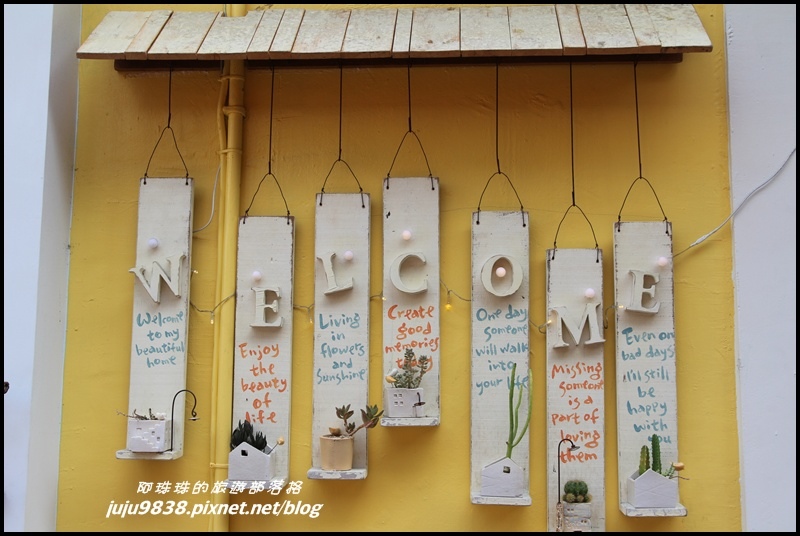 W
Welcome
to my
beautiful
home
E
Enjoy
the
beauty
of
life
L
Living
in
flowers
and
sunshine
C
Create
good
memories
O
One day
someone
will walk
into
your life
M
Missing
someone
is a
part of
loving
them
E
Even on
bad days
I'll still
be
happy
with
you
阿珠珠的旅遊部落格
juju9838.pixnet.net/blog